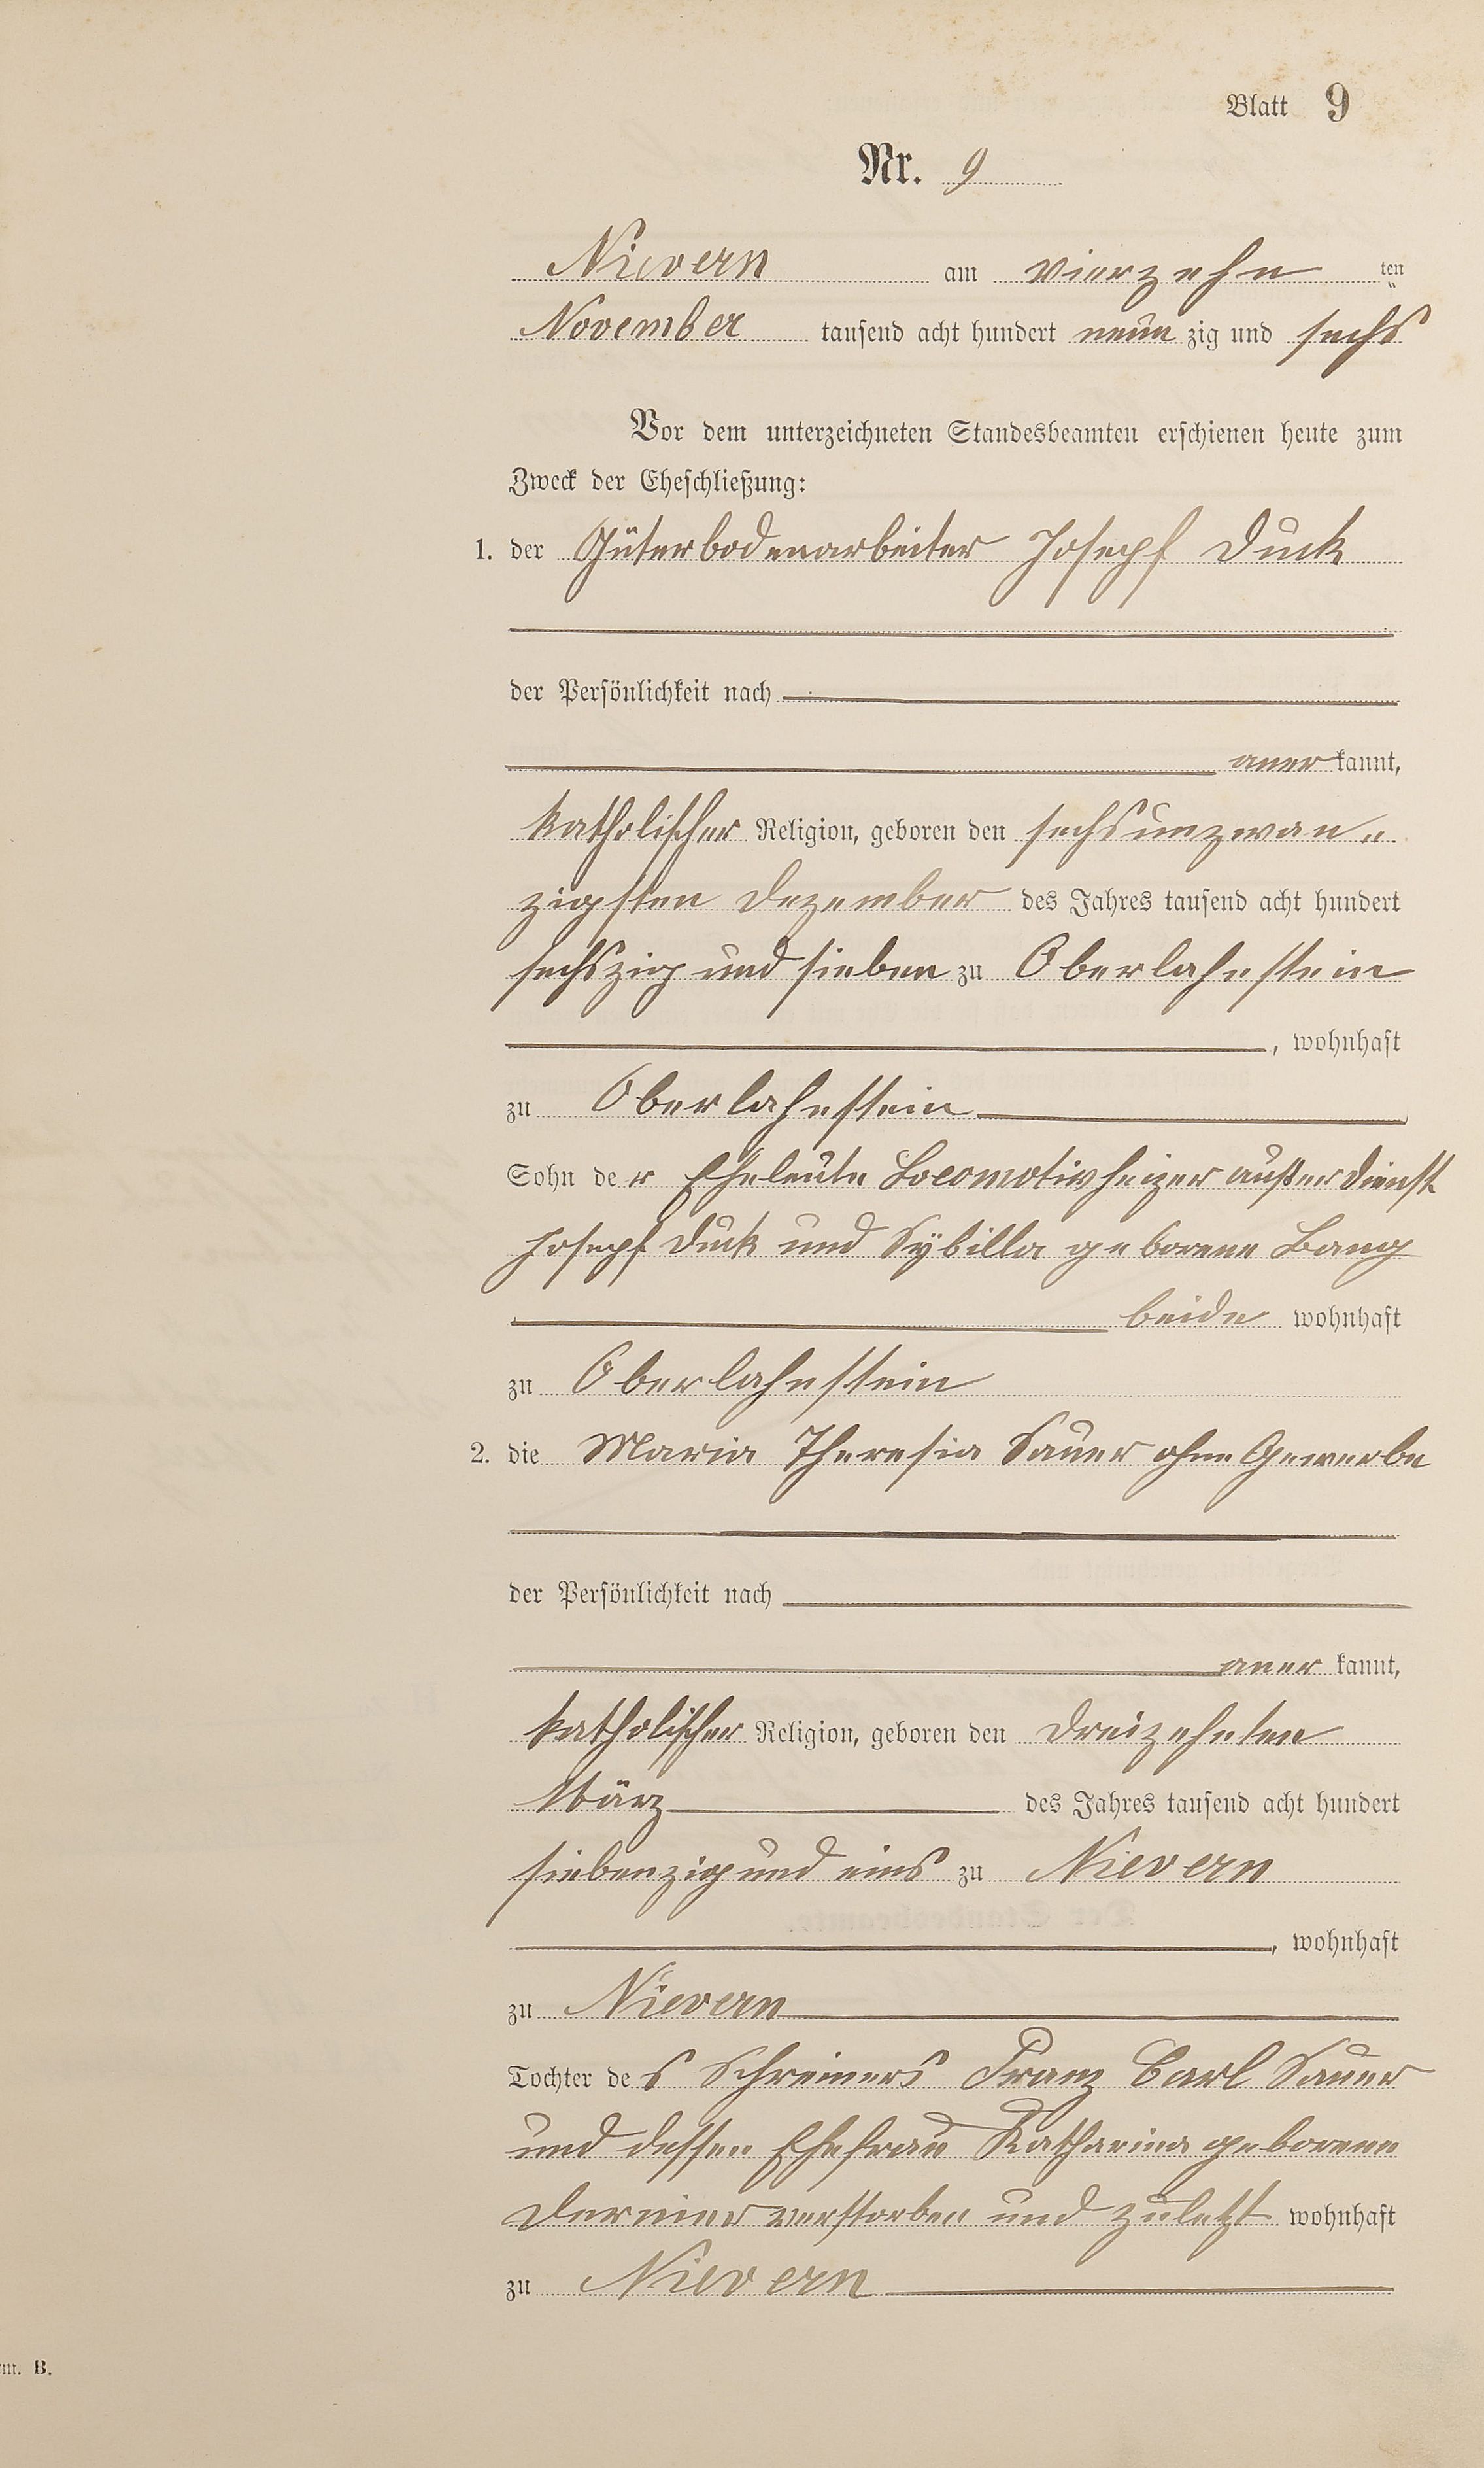 Blatt 9
Nr. 9
Nievern am vierzehn ten
November tausend acht hundert neun zig und sechs
Vor dem unterzeichneten Standesbeamten erschienen heute zum
Zweck der Eheschließung:
1. der Güterbodenarbeiter Joseph Duck
der Persönlichkeit nach
aner kannt,
katholischer Religion, geboren den sechsunzwan„
zigsten Dezember des Jahres tausend acht hundert
sechszig und sieben zu Oberlahnstein
, wohnhaft
zu Oberlahnstein
Sohn de r Eheleute Locomotivheizer außer Dienst
Joseph Duck und Sybilla geborene Bang
beide wohnhaft
zu Oberlahnstein
2. die Maria Theresia Sauer ohne Gewerbe
der Persönlichkeit nach
aner kannt,
katholischer Religion, geboren den dreizehnten
März des Jahres tausend acht hundert
siebenzig und eins zu Nievern
, wohnhaft
zu Nievern
Tochter de s Schreiners Franz Carl Sauer
und dessen Ehefrau Katharina geborene
verstorben und zuletzt wohnhaft
zu Nievern
m. B.